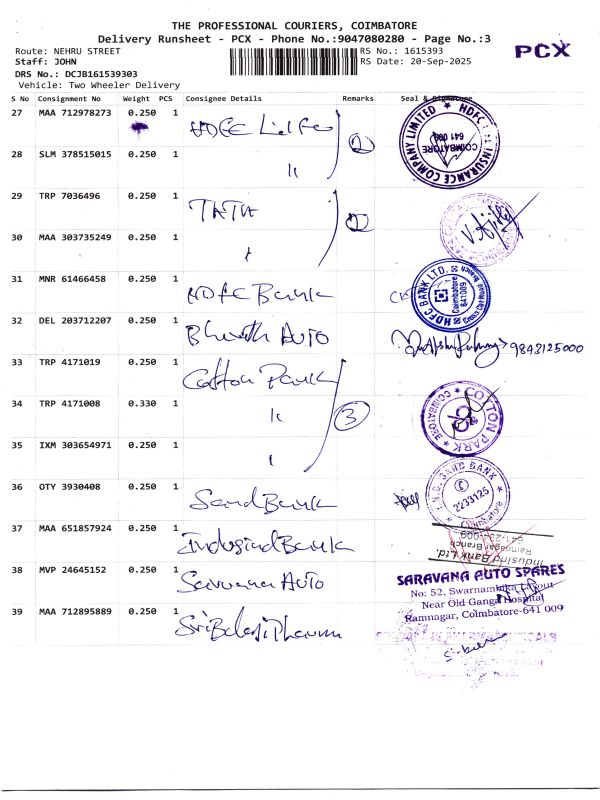 THE PROFESSIONAL COURIERS, COIMBATORE
Delivery Runsheet - PCX - Phone No.:9047080280 - Page No.:3
PCX
Route: NEHRU STREET RS No.: 1615393
Staff: JOHN RS Date: 20-Sep-2025
DRS No.: DCJB161539303
Vehicle: Two Wheeler Delivery
S No Consignment No Weight PCS Consignee Details Remarks Seal & Signature
27 MAA 712978273 0.250 1 HDFC Life
28 SLM 378515015 0.250 1 "
29 TRP 7036496 0.250 1 TATA
30 MAA 303735249 0.250 1
31 MNR 61466458 0.250 1 HDFC Bank
32 DEL 203712207 0.250 1 Bharath AUTO 9843125000
33 TRP 4171019 0.250 1 Cotton Park
34 TRP 4171008 0.330 1 " 3
35 IXM 303654971 0.250 1
36 OTY 3930408 0.250 1 Sand Bank
37 MAA 651857924 0.250 1 Indusind Bank
38 MVP 24645152 0.250 1 Saravana AUTO
39 MAA 712895889 0.250 1 Sri Balaji Pharma
INSURANCE COMPANY LIMITED ★ HDFC
COIMBATORE
641 009
HDFC BANK LTD.
Coimbatore
641009
Cross Cut Road Branch
COTTON PARK ★ COIMBATORE ★
SAND BANK
2233125
Coimbatore
IndusInd Bank Ltd.
Ramnagar Branch
SARAVANA AUTO SPARES
No: 52, Swarnambika Layout
Near Old Ganga Hospital
Ramnagar, Coimbatore-641 009